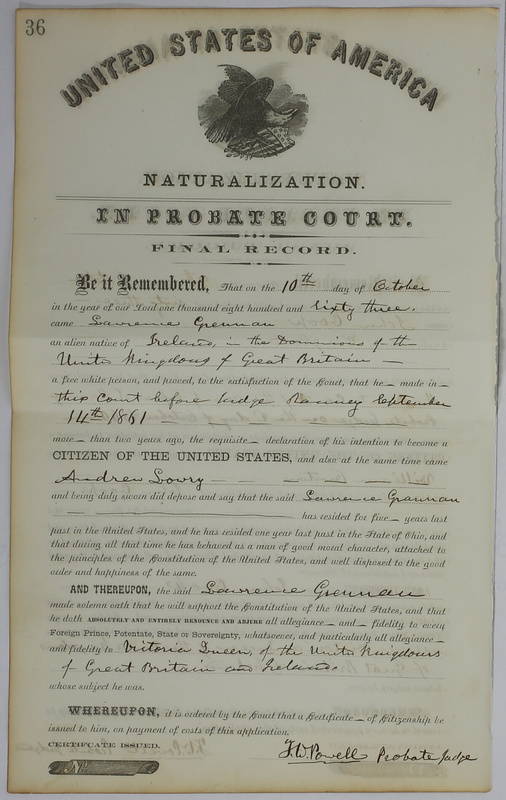 36
UNITED STATES OF AMERICA
NATURALIZATION.
IN PROBATE COURT.
FINAL RECORD.
Be it Remembered, That on the 10th day of October
in the year of our Lord one thousand eight hundred and sixty three,
came Lawrence Grennan
an alien native of Ireland, in the Dominions of th
United Kingdoms of Great Britain —
a free white person, and proved, to the satisfaction of the Court, that he — made in —
this Court before Judge Ranney September
14th 1861 —
more — than two years ago, the requisite — declaration of his intention to become a
CITIZEN OF THE UNITED STATES, and also at the same time came
Andrew Lowry — — — — —
and being duly sworn did depose and say that the said Lawrence Grennan
— has resided for five — years last
past in the United States, and he has resided one year last past in the State of Ohio, and
that during all that time he has behaved as a man of good moral character, attached to
the principles of the Constitution of the United States, and well disposed to the good
order and happiness of the same.
AND THEREUPON, the said Lawrence Grennan
made solemn oath that he will support the Constitution of the United States, and that
he doth ABSOLUTELY AND ENTIRELY RENOUNCE AND ABJURE all allegiance — and — fidelity to every
Foreign Prince, Potentate, State or Sovereignty, whatsoever, and particularly all allegiance —
and fidelity to Victoria Queen, of the United Kingdoms
of Great Britain and Ireland,
whose subject he was.
WHEREUPON, it is ordered by the Court that a Certificate — of Citizenship be
issued to him, on payment of costs of this application.
CERTIFICATE ISSUED.
F. W. Powell Probate Judge
No